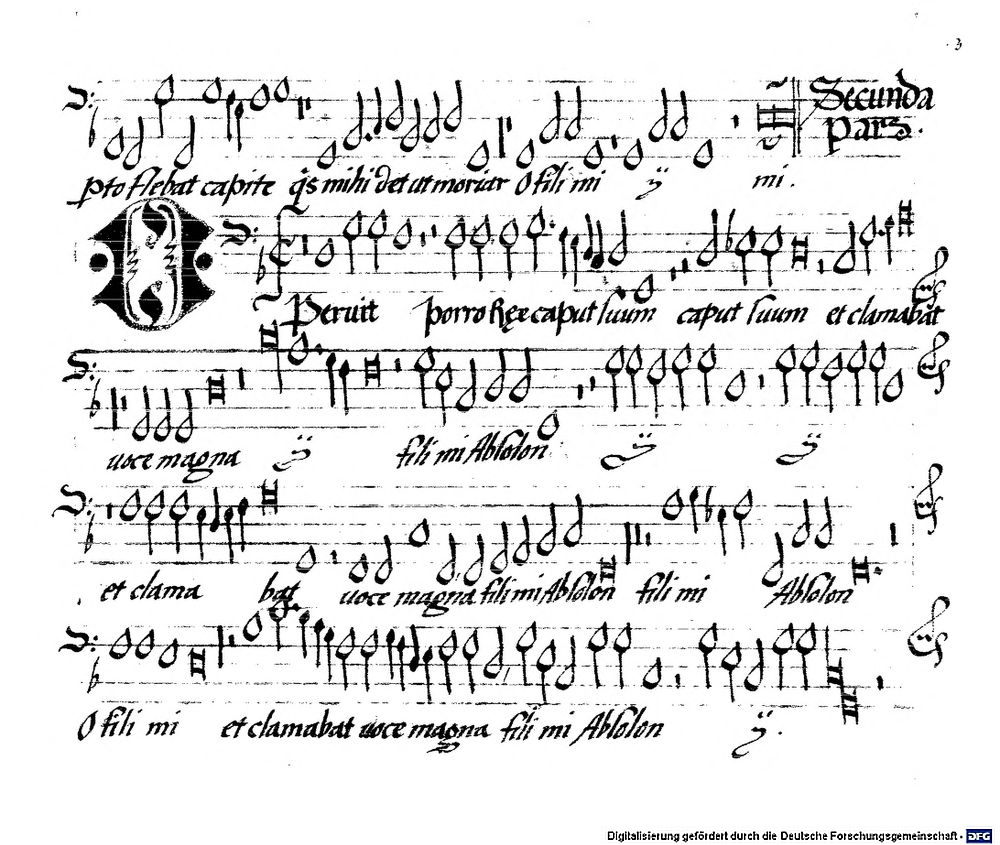 3
Secunda
Pars.
pto flebat capite q̃s mihi det ut moriar O fili mi ÿ mi.
O
Peruit porro Rex caput suum caput suum et clamabat
uoce magna ÿ fili mi Absolon ÿ ÿ
et clama bat uoce magna fili mi Absolon fili mi Absolon
O fili mi et clamabat uoce magna fili mi Absolon ÿ.
Digitalisierung gefördert durch die Deutsche Forschungsgemeinschaft - DFG